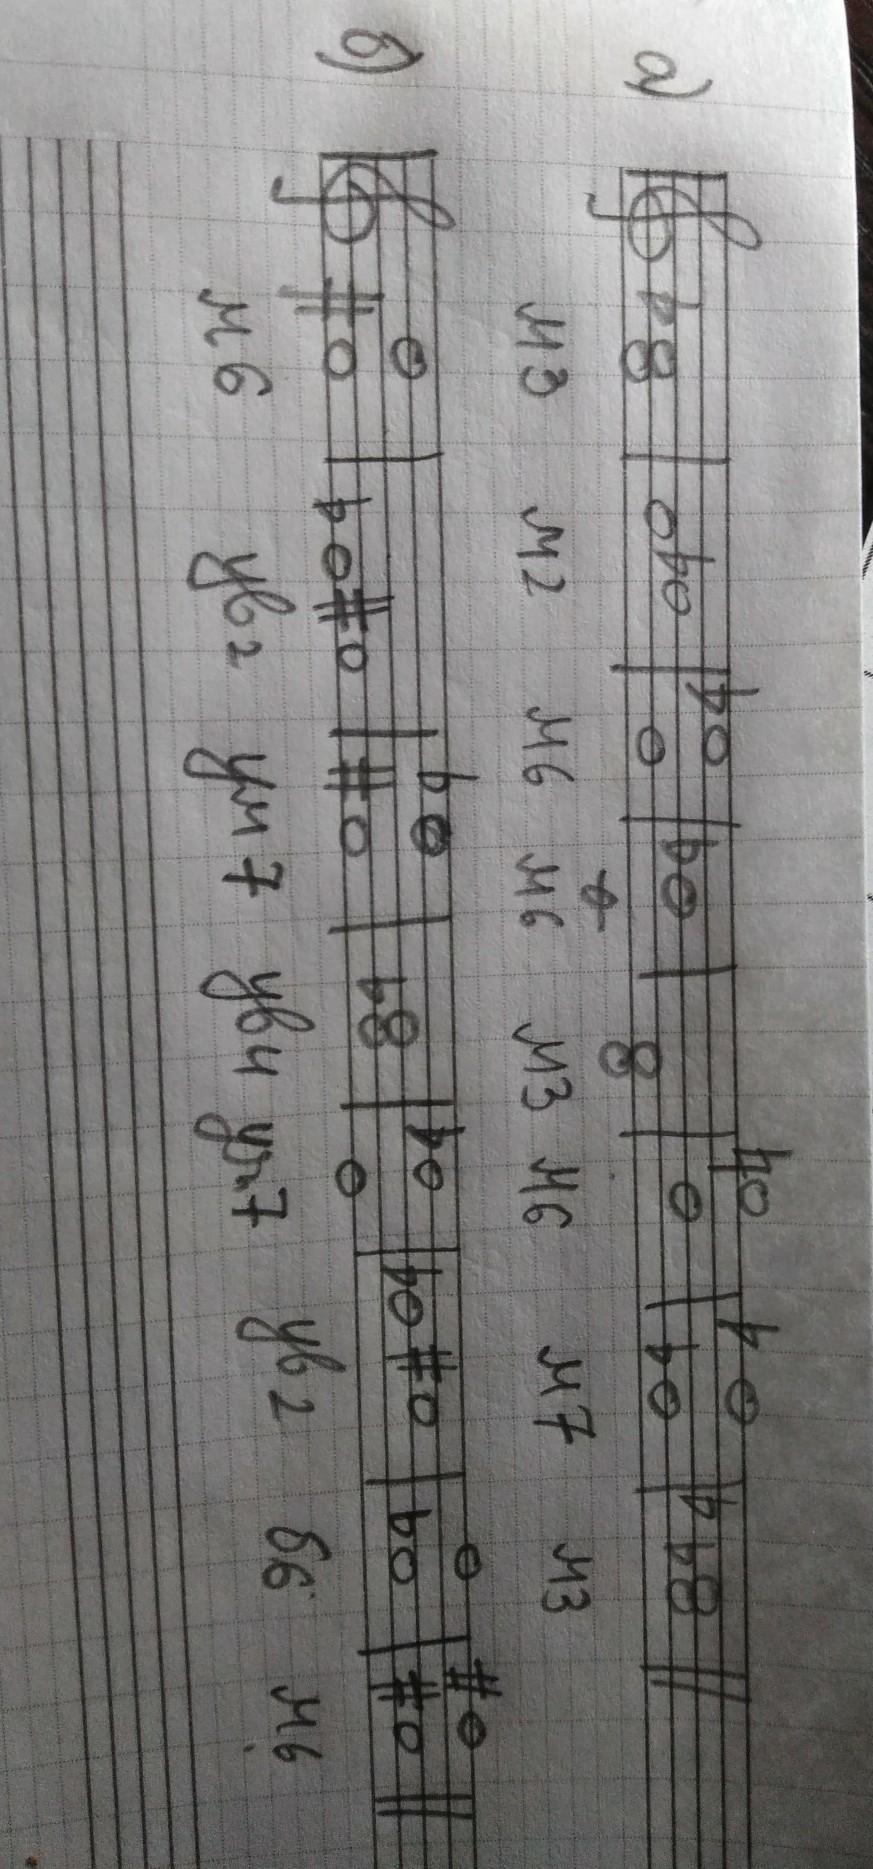 а)
м3 м2 м6 м6 м3 м6 м7 м3
б)
м6 ув2 ум7 ув4 ум7 ув2 б6 м6